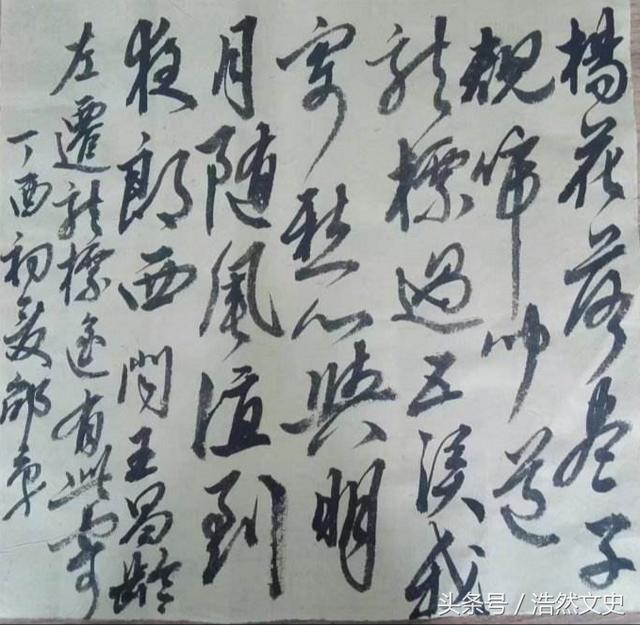 楊花落尽子
規啼闻道
龙標過五溪我
寄愁心與明
月随風直到
夜郎西闻王昌齡
左遷龙標遥有此寄
丁酉初夏
头条号 / 浩然文史